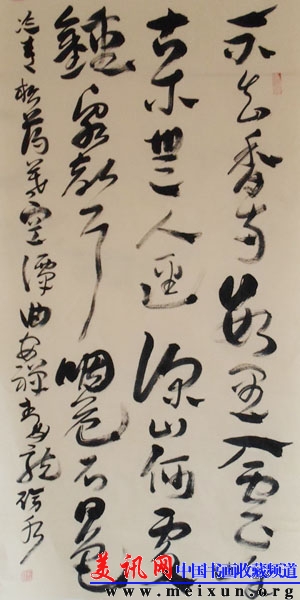 不知香寺數里入雲峰
古木無人逕深山何處
鐘泉聲咽危石日色
冷青松薄暮空潭曲安禪制毒龍
美讯网 中国书画收藏频道
www.meixun.org